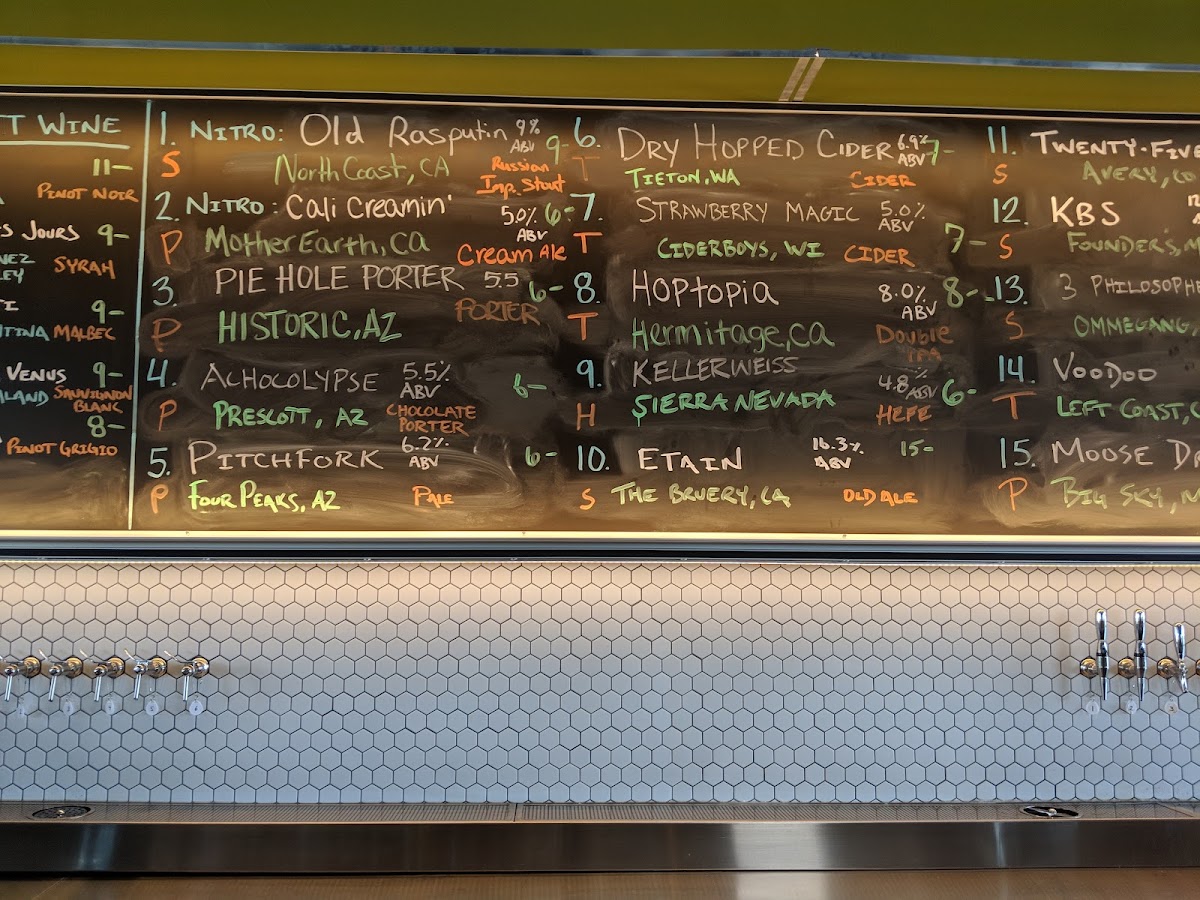 T WINE
11-
PINOT NOIR
S JOURS 9-
NEZ
LEY SYRAH
9-
TINA MALBEC
VENUS 9-
ALAND SAUVIGNON BLANC
8-
PINOT GRIGIO
1. NITRO: Old Rasputin 9% ABV 9-
S North Coast, CA Russian Imp. Stout
2. NITRO: Cali Creamin' 5.0% ABV 6-
P Mother Earth, CA Cream Ale
3. PIE HOLE PORTER 5.5 6-
P HISTORIC, AZ PORTER
4. ACHOCOLYPSE 5.5% ABV 6-
P PRESCOTT, AZ CHOCOLATE PORTER
5. PITCHFORK 6.2% ABV 6-
P FOUR PEAKS, AZ PALE
6. DRY HOPPED CIDER 6.9% ABV 7-
T TIETON, WA CIDER
7. STRAWBERRY MAGIC 5.0% ABV 7-
T CIDERBOYS, WI CIDER
8. HOPTOPIA 8.0% ABV 8-
T Hermitage, CA Double IPA
9. KELLERWEISS 4.8% ABV 6-
H SIERRA NEVADA HEFE
10. ETAIN 16.3% ABV 15-
S THE BRUERY, CA OLD ALE
11. TWENTY-FIVE
S AVERY, CO
12. KBS
S FOUNDERS, M
13. 3 PHILOSOPHE
S OMMEGANG,
14. VOODOO
T LEFT COAST, C
15. MOOSE DR
P BIG SKY, M